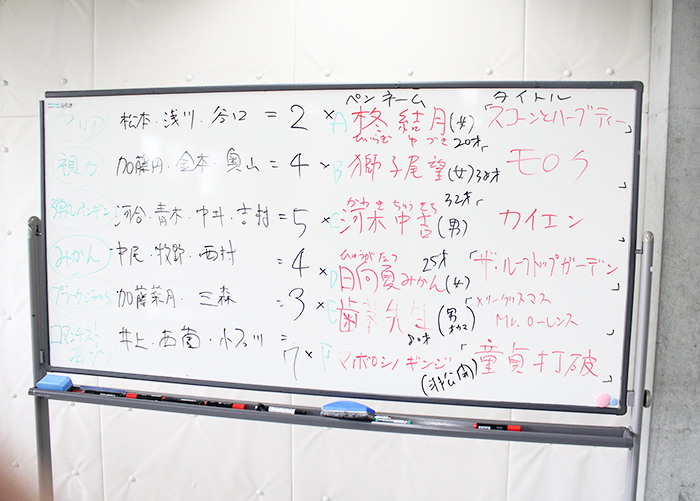 ペンネーム タイトル
松本・浅川・谷口 = 2 × A 柊 結月(女) 「スコーンとハーブティー」
ひいらぎ ゆづき 20才
視力 加藤円・金本・奥山 = 4 × B 獅子尾望(女)38才 「モロク」
河合・青木・中井・吉村 = 5 × C 河木中吉(男) 32才 「カイエン」
みかん 中尾・牧野・西村 = 4 × D 日向夏みかん(女) 25才 「ザ・ルーフトップガーデン」
ひゅうがなつ
ブラックジャック 加藤菜月・三森 = 3 × E 歯 先生(男 メリークリスマス
Mr.ローレンス
ロマンチスト 井上・西薗・ = 7 × F マボロシノギンジ 80才 「童貞打破」